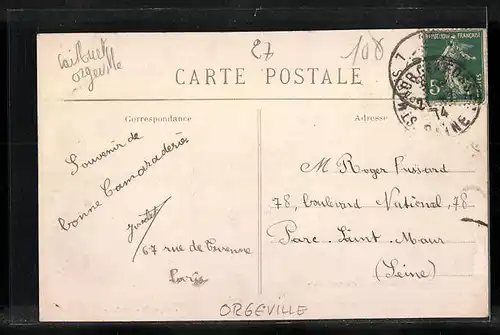 Caillouet
Orgeville
27
108
CARTE POSTALE
RÉPUBLIQUE FRANÇAISE
5
14
SEINE
Correspondance
Adresse
Souvenir de
bonne Camaraderie
67 rue de Turenne
Paris
M Roger Pussard
78, boulevard National, 78
Parc Saint Maur
(Seine)
ORGEVILLE